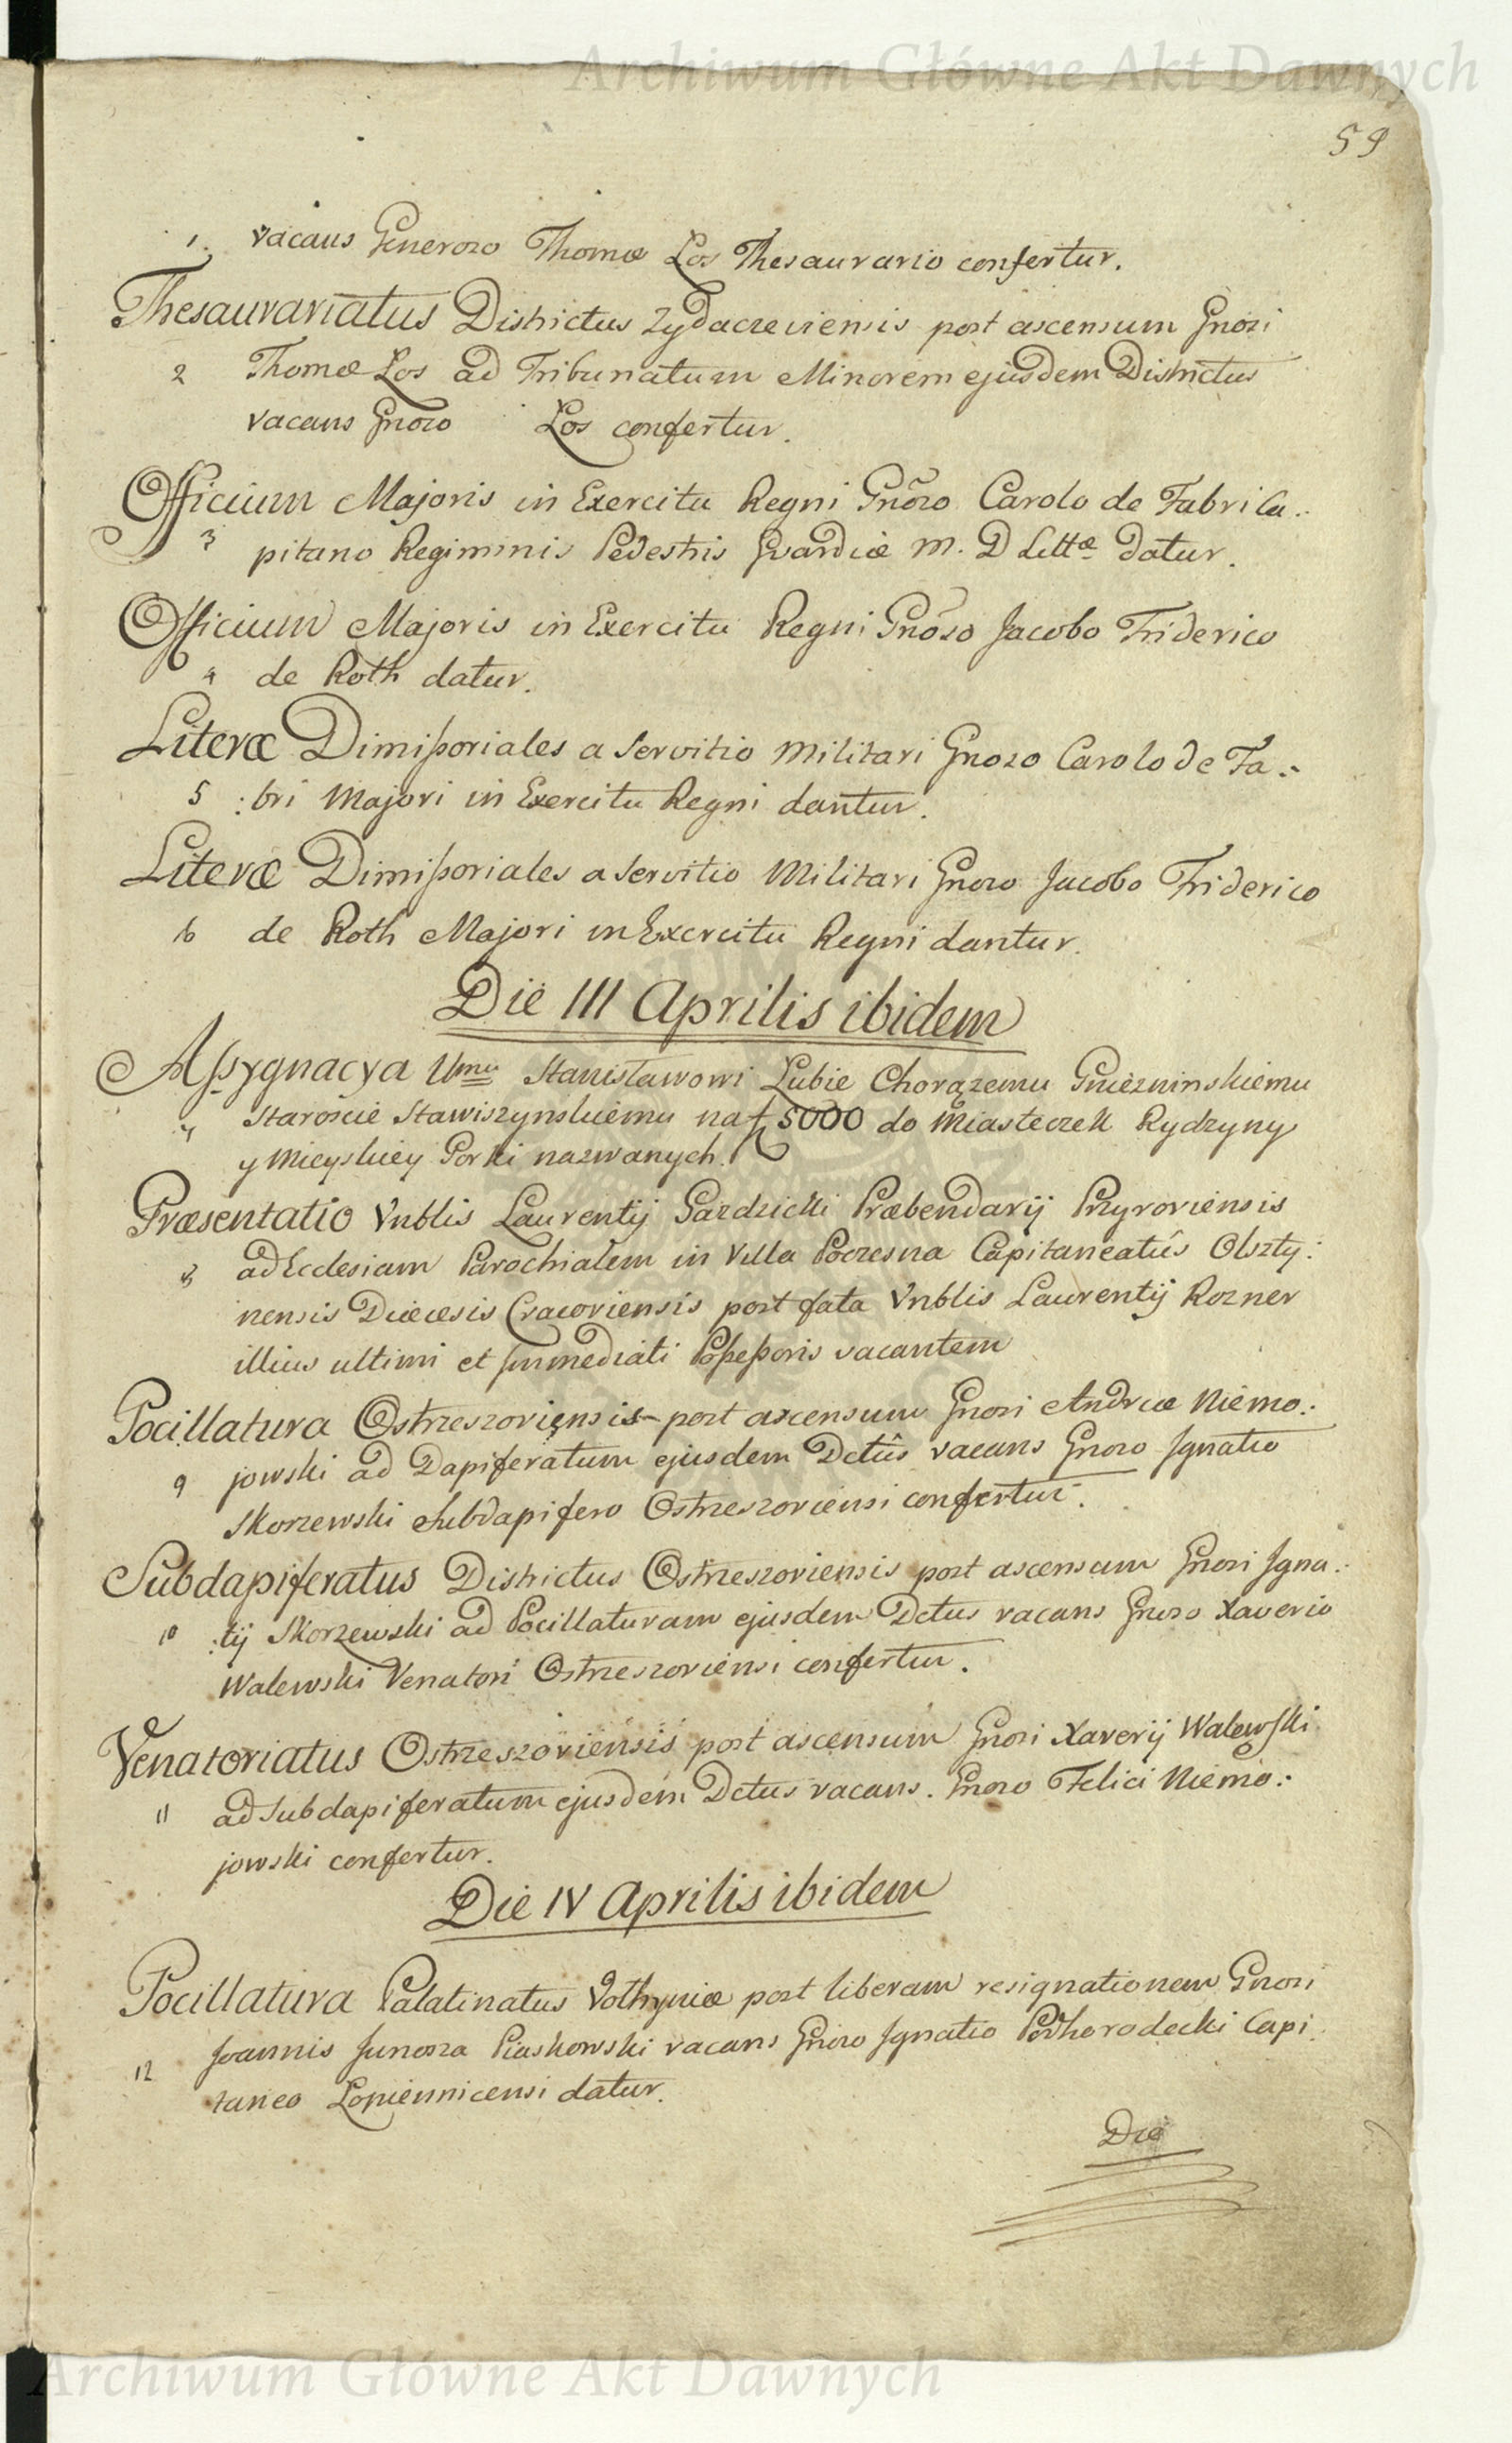 Archiwum Główne Akt Dawnych
59
1. vacans Generozo Thomæ Los Thesaurario confertur.
Thesaurariatus Districtus Zydaczeviensis post ascensum Gnozi
2 Thomæ Los ad Tribunatum Minorem ejusdem Districtus
vacans Gnozo Los confertur.
Officium Majoris in Exercitu Regni Gnõzo Carolo de Fabri Ca.:
3 pitano Regiminis Pedestris Gvardiæ M. D Littæ datur.
Officium Majoris in Exercitu Regni Gnõzo Jacobo Friderico
4 de Roth datur.
Literæ Dimißoriales a Servitio Militari Gnozo Carolo de Fa.:
5 :bri Majori in Exercitu Regni dantur.
Literæ Dimißoriales a Servitio Militari Gnozo Jacobo Friderico
6 de Roth Majori in Exercitu Regni dantur.
Die III Aprilis ibidem
Aßygnacya Umu Stanisławowi Łubie Chorązemu Gniezninskiemu
7 Staroscie Stawiszynskiemu na f 5000 do Miasteczek Rydzyny
y Mieyskiey Gorki nazwanych.
Præsentatio Vnblis Laurentij Gardzicki Præbendarij Przyroviensis
8 ad Ecclesiam Parochialem in Villa Poczesna Capitaneatûs Olszty:
nensis Diæcesis Cracoviensis post fata Vnblis Laurentij Rozner
illius ultimi et Immediati Poßeßoris vacantem
Pocillatura Ostrzeszoviensis post ascensum Gnozi Andreæ Niemo.:
9 jowski ad Dapiferatum ejusdem Dctûs vacans Gnozo Ignatio
Skorzewski Subdapifero Ostrzeszoviensi confertur.
Subdapiferatus Districtus Ostrzeszoviensis post ascensum Gnozi Igna.:
10 :tij Skorzewski ad Pocillaturam ejusdem Dctus vacans Gnozo Xaverio
Walewski Venatori Ostrzeszoviensi confertur.
Venatoriatus Ostrzeszoviensis post ascensum Gnozi Xaverij Walewski
11 ad Subdapiferatum ejusdem Dctus vacans. Gnozo Felici Niemo.:
jowski confertur.
Die IV Aprilis ibidem
Pocillatura Palatinatus Volhyniæ post liberam resignationem Gnozi
12 Joannis Junosza Piaskowski vacans Gnozo Ignatio Podhorodecki Capi.
taneo Lopiennicensi datur.
Die
Archiwum Główne Akt Dawnych